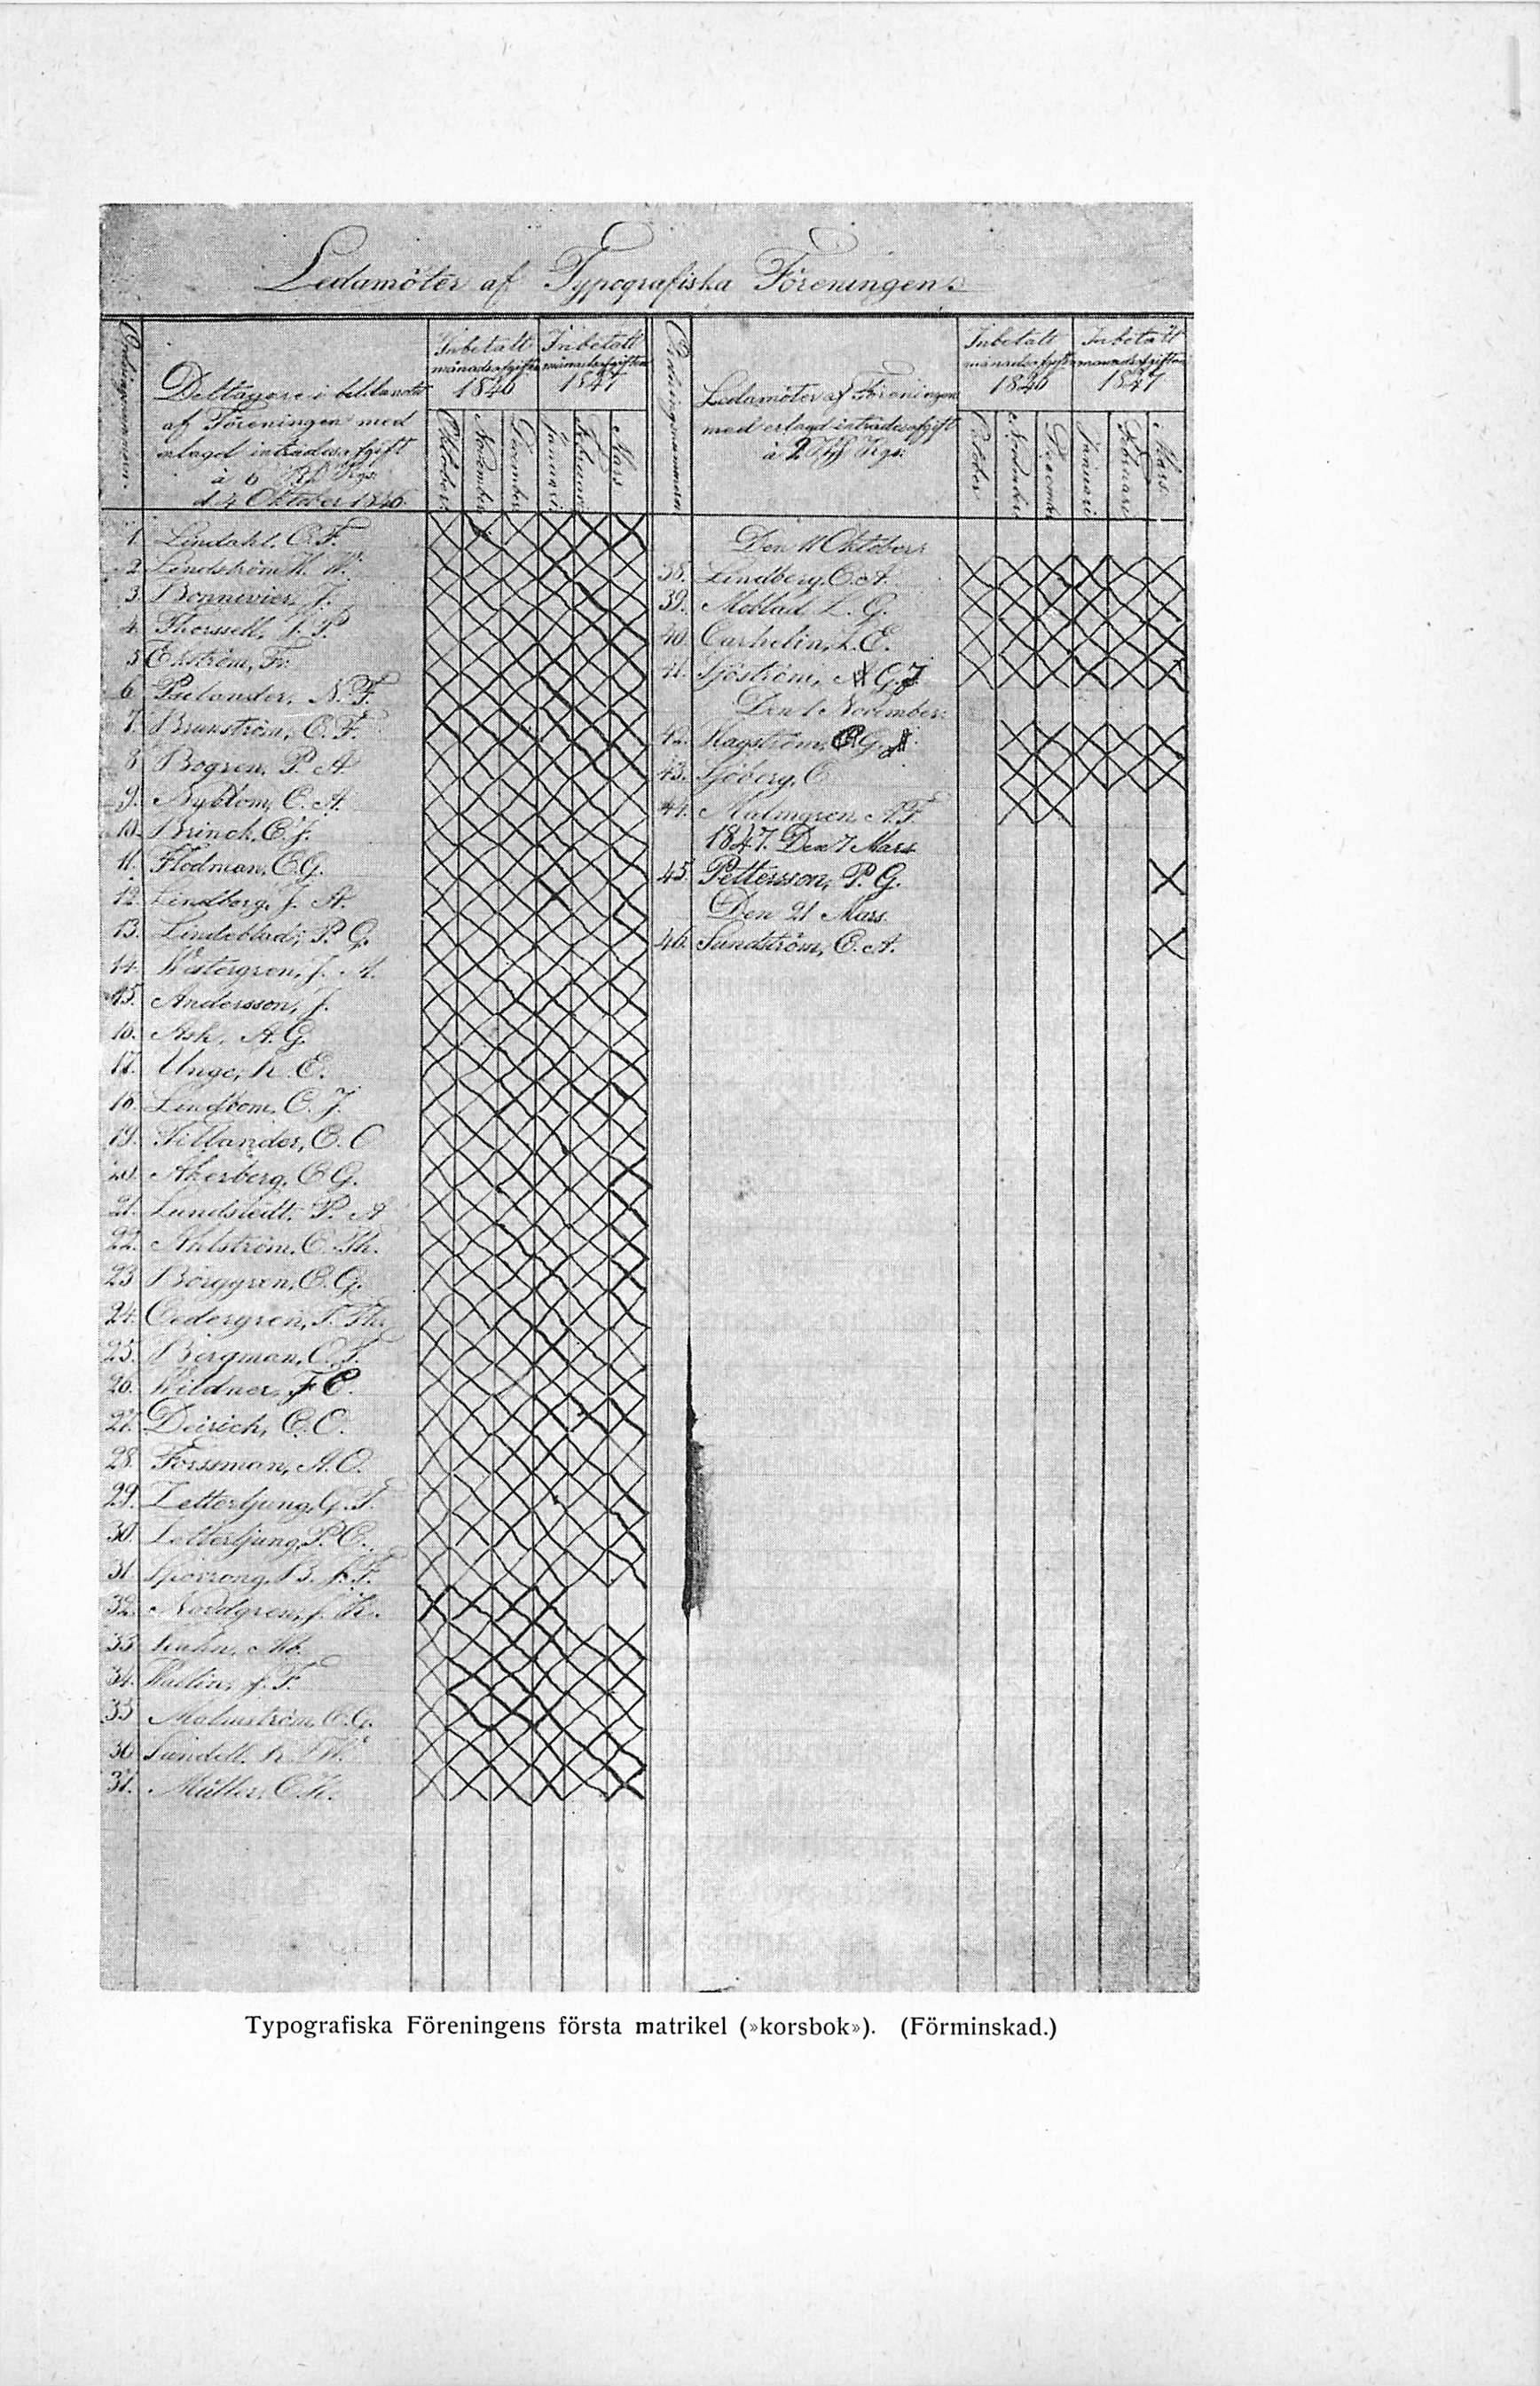 Ledamöter af Typografiska Föreningen
Ordningsnummer
Deltagare i bildandet
af Föreningen med
erlagd inträdesafgift
à 6 Rgs
d. 4 Oktober 1846
Inbetalt
månadsafgifter
1846
Inbetalt
månadsafgifter
1847
Oktober
November
December
Januari
Februari
Mars
1. Lindahl, C. F.
2. Lindström W.
3. Bonnevier, J.
4. Thorssell, P.
5 Ekström, Fr.
6. N. F.
7. Brunström, C. F.
8 Bogren, P. A.
9. Nyblom, C. A.
10. Brinck, C. J.
11. Flodman, C. G.
12. Lindberg, J. A.
13. Lindeblad, P. G.
14. Westergren, J. A.
15. Andersson, J.
16. Ask, A. G.
17. Unge, E.
18. Lindbom, C. J.
19. Tillander, C. C
20. Åkerberg, C G.
21. Lundstedt, P. A
22. C. Th.
23 Borggren, C. G.
24. Cedergren,
25. Bergman, C. F.
26. Wildner, F C.
27. Deirich, C. C.
28. Forssman, A. O.
29. Zetterljung, G. F.
30. Zetterljung, P. C.
31 Sporrong, B. F.
32. Nordgren, J.
33
34. Wallin, J. F.
35 Malmström, C. G.
36 Sundell, W.
37. Müller, C.
Ordningsnummer
Ledamöter af Föreningen
med erlagd inträdesafgift
à 2 Rgs.
Inbetalt
månadsafgifter
1846
Inbetalt
månadsafgifter
1847
Oktober
November
December
Januari
Februari
Mars
Den 11 Oktober.
38. Lindberg, C. A.
39. Moblad, L. G.
40. Carhelin, L. E.
41. Sjöström, G. J
Den 1 November.
42. Hagström, G.
43. Sjöberg, C
44. Malmgren, A. F
1847. Den 7 Mars
45. Pettersson, P. G.
Den 21 Mars.
46. Sundström, C. A.
Typografiska Föreningens första matrikel (»korsbok»). (Förminskad.)